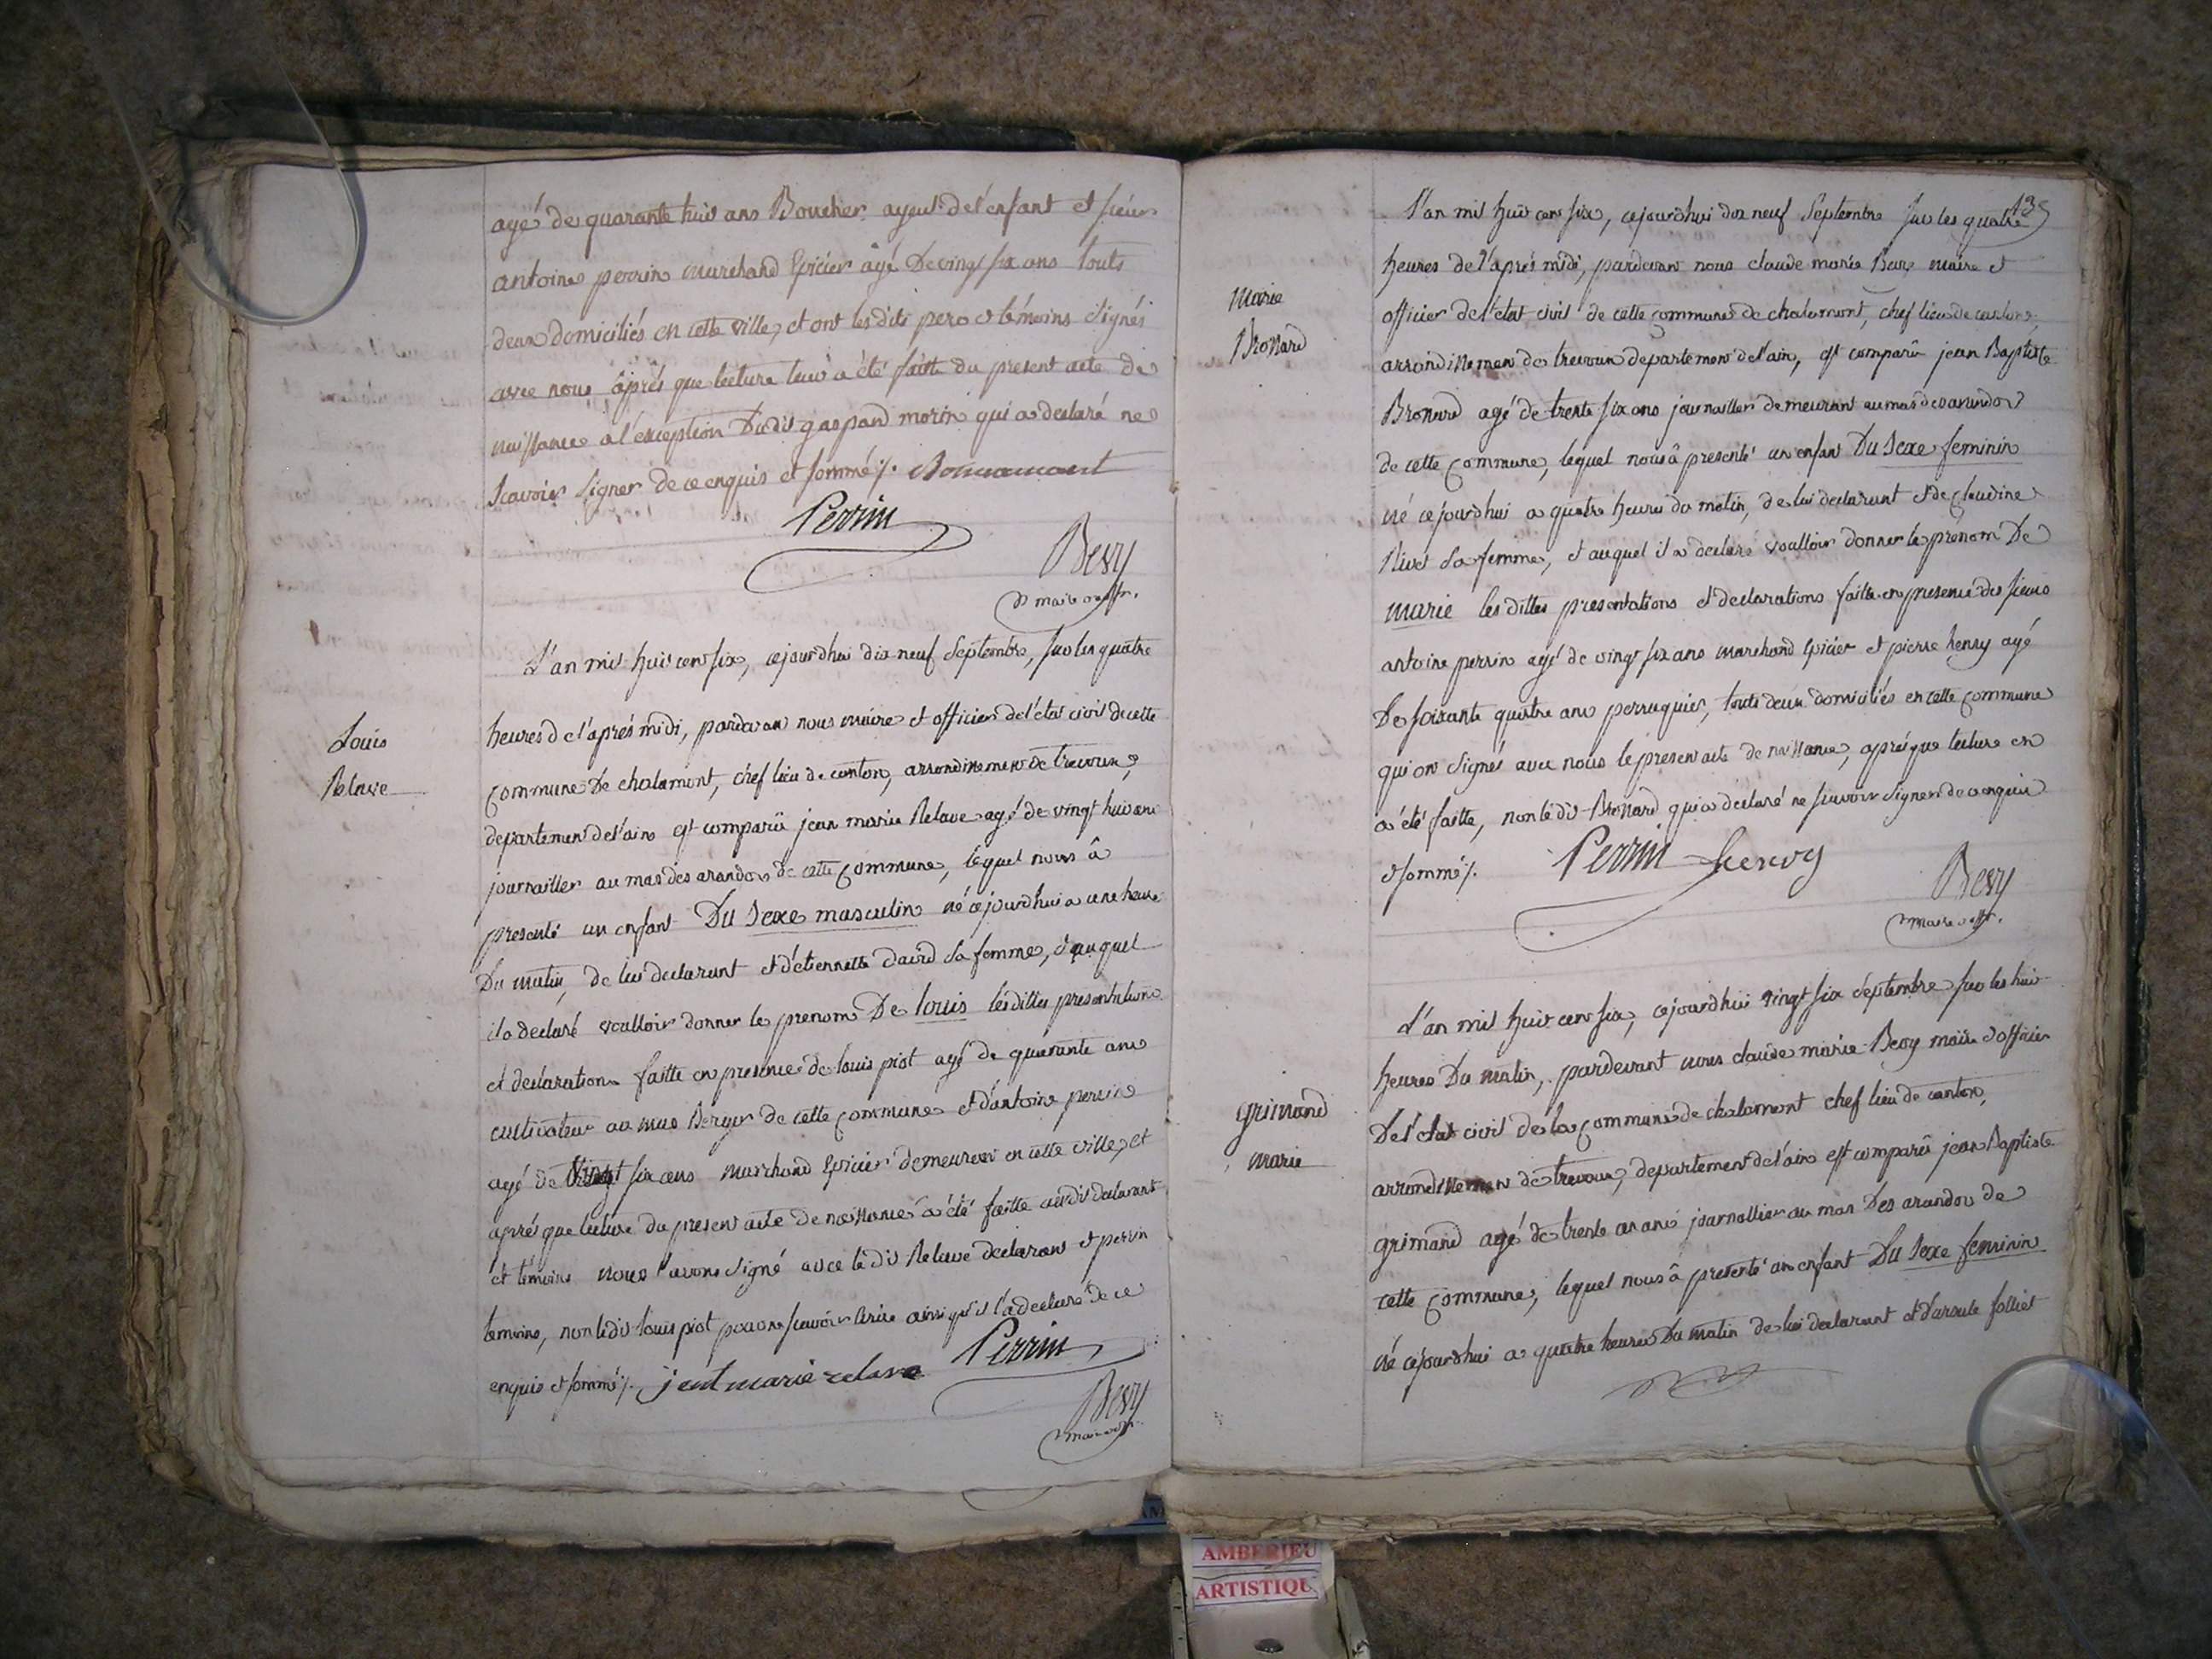 agé de quarante huit ans Boucher, ayeul de l'enfant et sieur
antoine perrin marchand Epicier agé De vingt six ans touts
deux domiciliés en cette ville, et ont lesdits pere et témoins signés
avec nous après que lecture leur a été faitte du present acte de
naissance a l'exception Dudit gaspard morin qui a declaré ne
scavoir signer de ce enquis et sommé /.
Perrin
Bevy
maire off.
L'an mil huit cent six, cejourd'hui dix neuf Septembre, sur les quatre
heures de l'après midi, pardevant nous maire et officier de l'etat civil de cette
Louis
Relave
commune De chalamont, chef lieu de canton, arrondissement de trevoux,
departement de l'ain est comparû jean marie Relave agé de vingt huit ans
journallier au mas des arandos de cette commune, lequel nous â
presenté un enfant Du Sexe masculin né cejourd'hui a une heure
Du matin, de lui declarant et d'etiennette david sa femme, et auquel
il a declaré voulloir donner le prenom De louis lesdittes presentation
et declaration faitte en presence de louis piot agé de quarante ans
cultivateur au mas Berger de cette commune et d'antoine perrin
agé de vingt six ans marchand Epicier demeurant en cette ville, et
après que lecture du present acte de naissance a été faitte audit declarant
et temoins nous l'avons signé avec le dit Relave declarant et perrin
temoins, non ledit louis piot pour ne scavoir écrire ainsi qu'il l'a declaré de ce
enquis et sommé /. jean marie relave Perrin
Bevy
maire off.
135
L'an mil huit cent six, cejourd'hui dix neuf Septembre sur les quatre
heures de l'après midi, pardevant nous claude marie Bevy maire et
marie
Bronard
officier de l'etat civil de cette commune de chalamont, chef lieu de canton,
arrondissement de trevoux departement de l'ain, est comparû jean Baptiste
Bronard agé de trente six ans journallier demeurant au mas des arandos
de cette commune, lequel nous â presenté un enfant Du Sexe feminin
né cejourd'hui a quatre heures du matin, de lui declarant et de claudine
sa femme, et auquel il a declaré voulloir donner le prénom De
marie les dittes presentations et declarations faitte en presence des sieurs
antoine perrin agé de vingt six ans marchand Epicier et pierre henry agé
De soixante quatre ans perruquier, touts deux domiciliés en cette commune
qui ont signés avec nous le present acte de naissance, après que lecture en
a été faitte, non le dit Bronard qui a declaré ne scavoir signer de ce enquis
et sommé /. Perrin henry
Bevy
maire off.
L'an mil huit cent six, cejourd'hui vingt six septembre sur les huit
heures Du matin, pardevant nous claude marie Bevy maire et officier
grimand
marie
De l'etat civil de la commune de chalamont chef lieu de canton,
arrondissement de trevoux, departement de l'ain est comparû jean Baptiste
grimand agé de trente un ans journallier au mas Des arandos de
cette commune, lequel nous â presenté un enfant Du Sexe feminin
né cejourd'hui a quatre heures Du matin de lui declarant et d'ursule folliet
AMBERIEU
ARTISTIQU